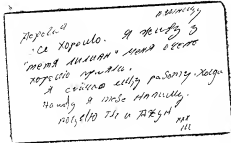 пятницу
Дорогая
Все хорошо. Я живу у
"тетя Лилиан" меня очень
хорошо приняли.
Я сейчас ищу работу. Когда
найду я тебе напишу.
целую ты и Джун